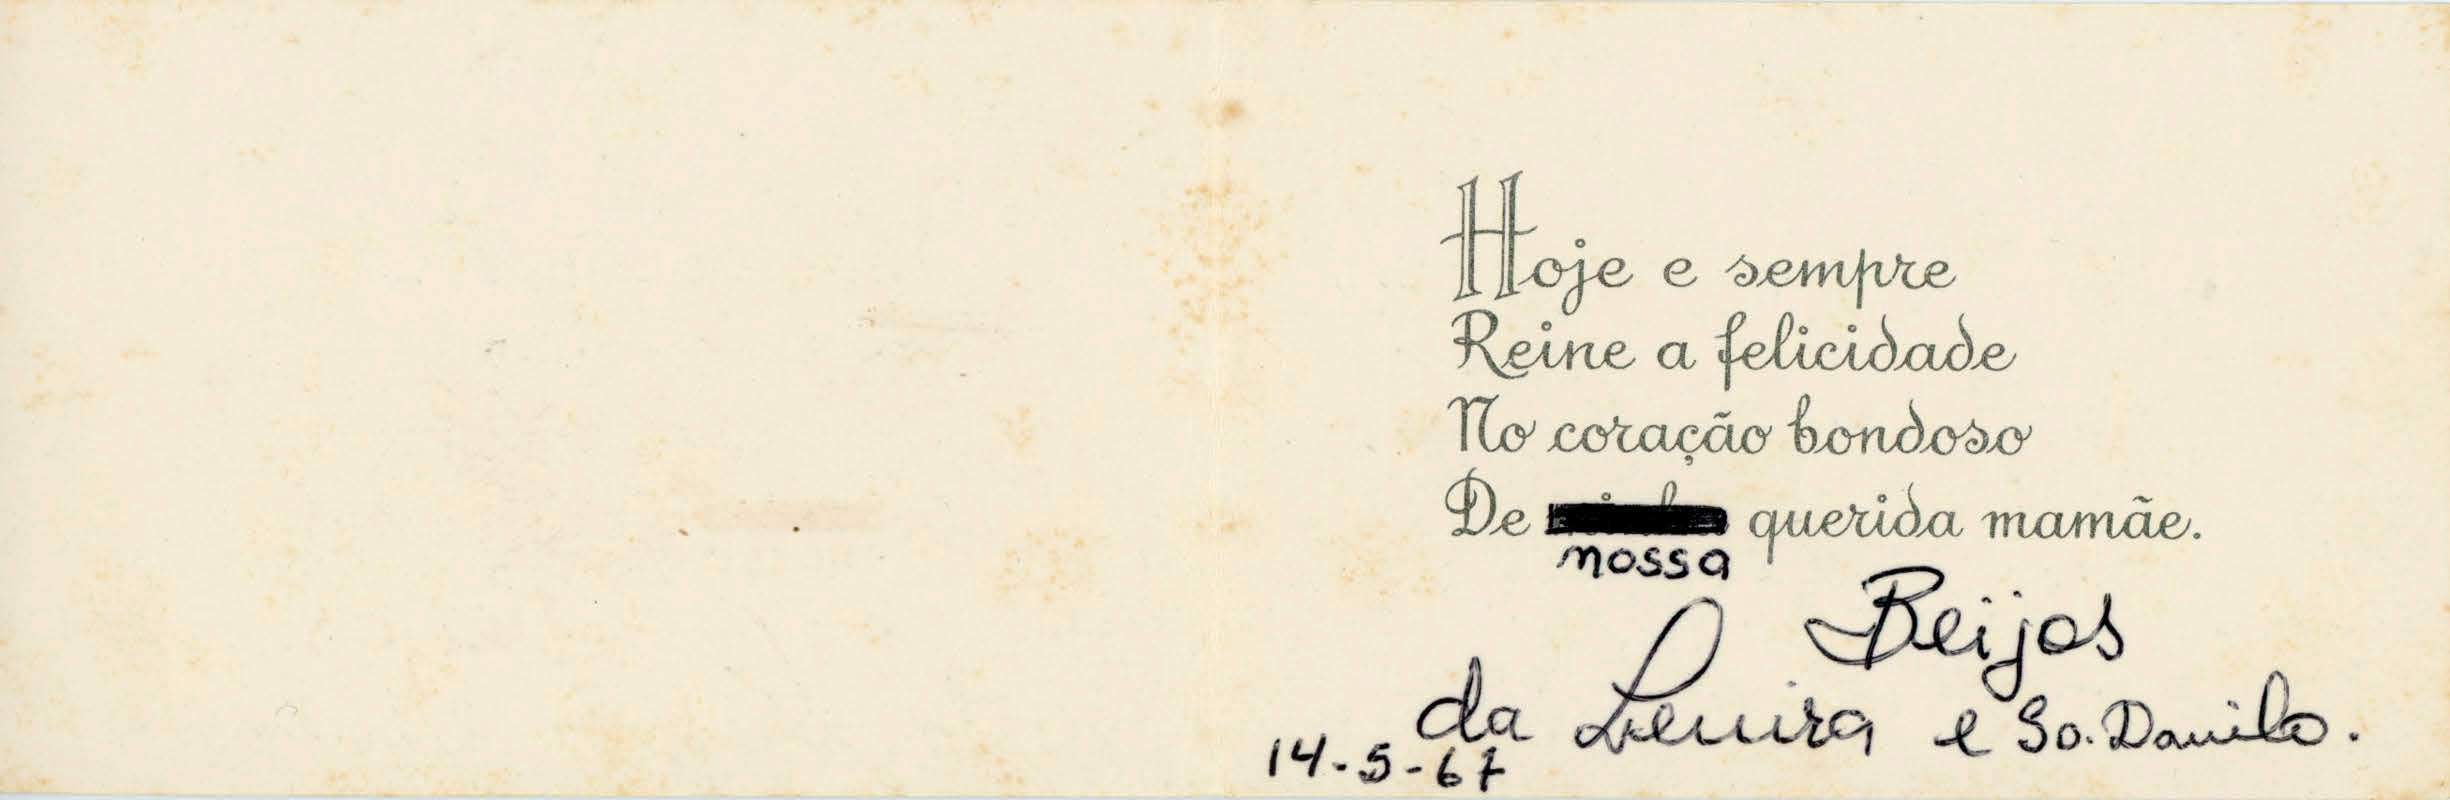 Hoje e sempre
Reine a felicidade
No coração bondoso
De querida mamãe.
nossa
Beijos
da Lenira e So. Danilo.
14-5-67